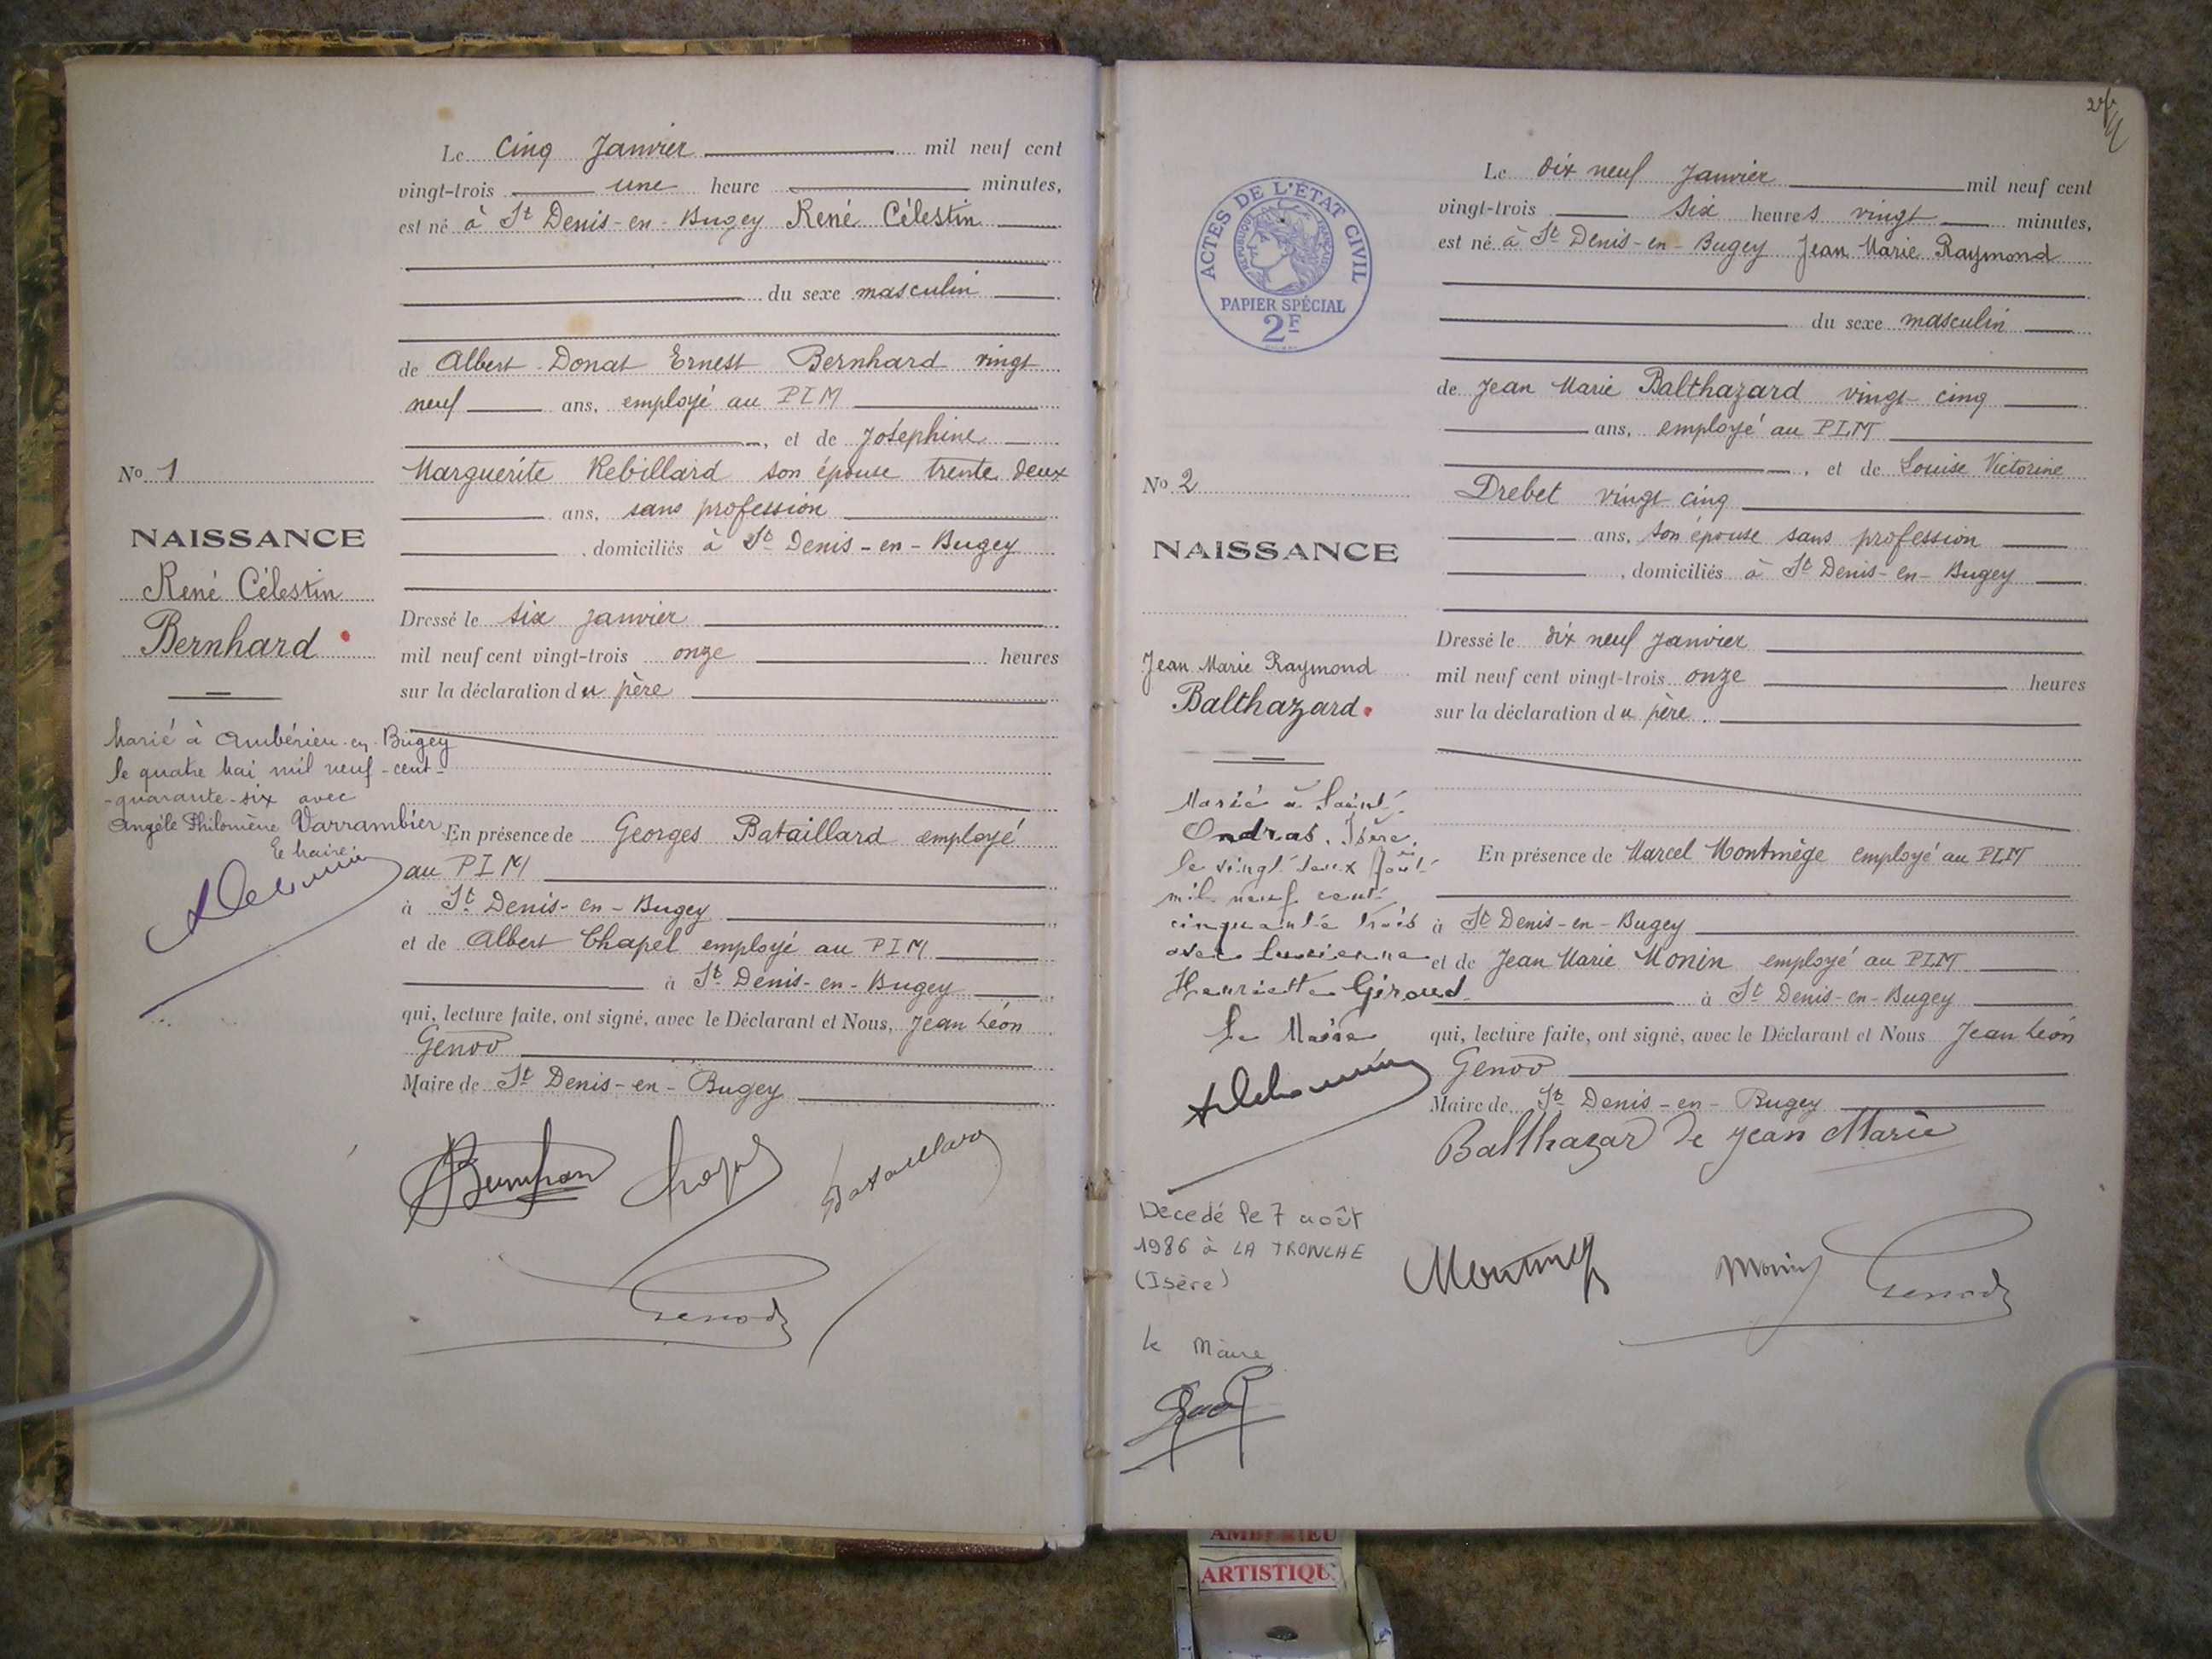 Le cinq Janvier mil neuf cent
vingt-trois une heure minutes,
est né à St Denis-en-Bugey René Célestin
du sexe masculin
de Albert Donat Ernest Bernhard vingt
neuf ans, employé au PLM
, et de Josephine
Marguerite Rebillard son épouse trente deux
ans, sans profession
, domiciliés à St Denis-en-Bugey
Dressé le six janvier
mil neuf cent vingt-trois onze heures
sur la déclaration du père
En présence de Georges Bataillard employé
au PLM
à St Denis-en-Bugey
et de Albert Chapel employé au PLM
à St Denis-en-Bugey
qui, lecture faite, ont signé, avec le Déclarant et Nous, Jean Léon
Genod
Maire de St Denis-en-Bugey
Chapel Bataillard
Genod
No 1
NAISSANCE
René Célestin
Bernhard
Marié à Ambérieu-en-Bugey
le quatre Mai mil neuf-cent-
-quarante-six avec
Angèle Philomène Varrambier
Le Maire
ACTES DE L'ÉTAT CIVIL
RÉPUBLIQUE FRANÇAISE
PAPIER SPÉCIAL
2F
Le dix neuf Janvier mil neuf cent
vingt-trois six heures vingt minutes,
est né à St Denis-en-Bugey Jean Marie Raymond
du sexe masculin
de Jean Marie Balthazard vingt-cinq
ans, employé au PLM
, et de Louise Victorine
Drebet vingt cinq
ans, son épouse sans profession
, domiciliés à St Denis-en-Bugey
Dressé le dix neuf Janvier
mil neuf cent vingt-trois onze heures
sur la déclaration du père
En présence de Marcel Montmège employé au PLM
à St Denis-en-Bugey
et de Jean Marie Monin employé au PLM
à St Denis-en-Bugey
qui, lecture faite, ont signé, avec le Déclarant et Nous Jean Léon
Genod
Maire de St Denis-en-Bugey
Balthazar de Jean Marie
Monin Genod
No 2
NAISSANCE
Jean Marie Raymond
Balthazard
Marié à Saint-
Ondras, Isère,
le vingt deux Août
mil neuf cent
cinquante trois
avec Lucienne
Henriette Giroud
Le Maire
Décedé le 7 août
1986 à LA TRONCHE
(Isère)
Le Maire
AMBERIEU
ARTISTIQU